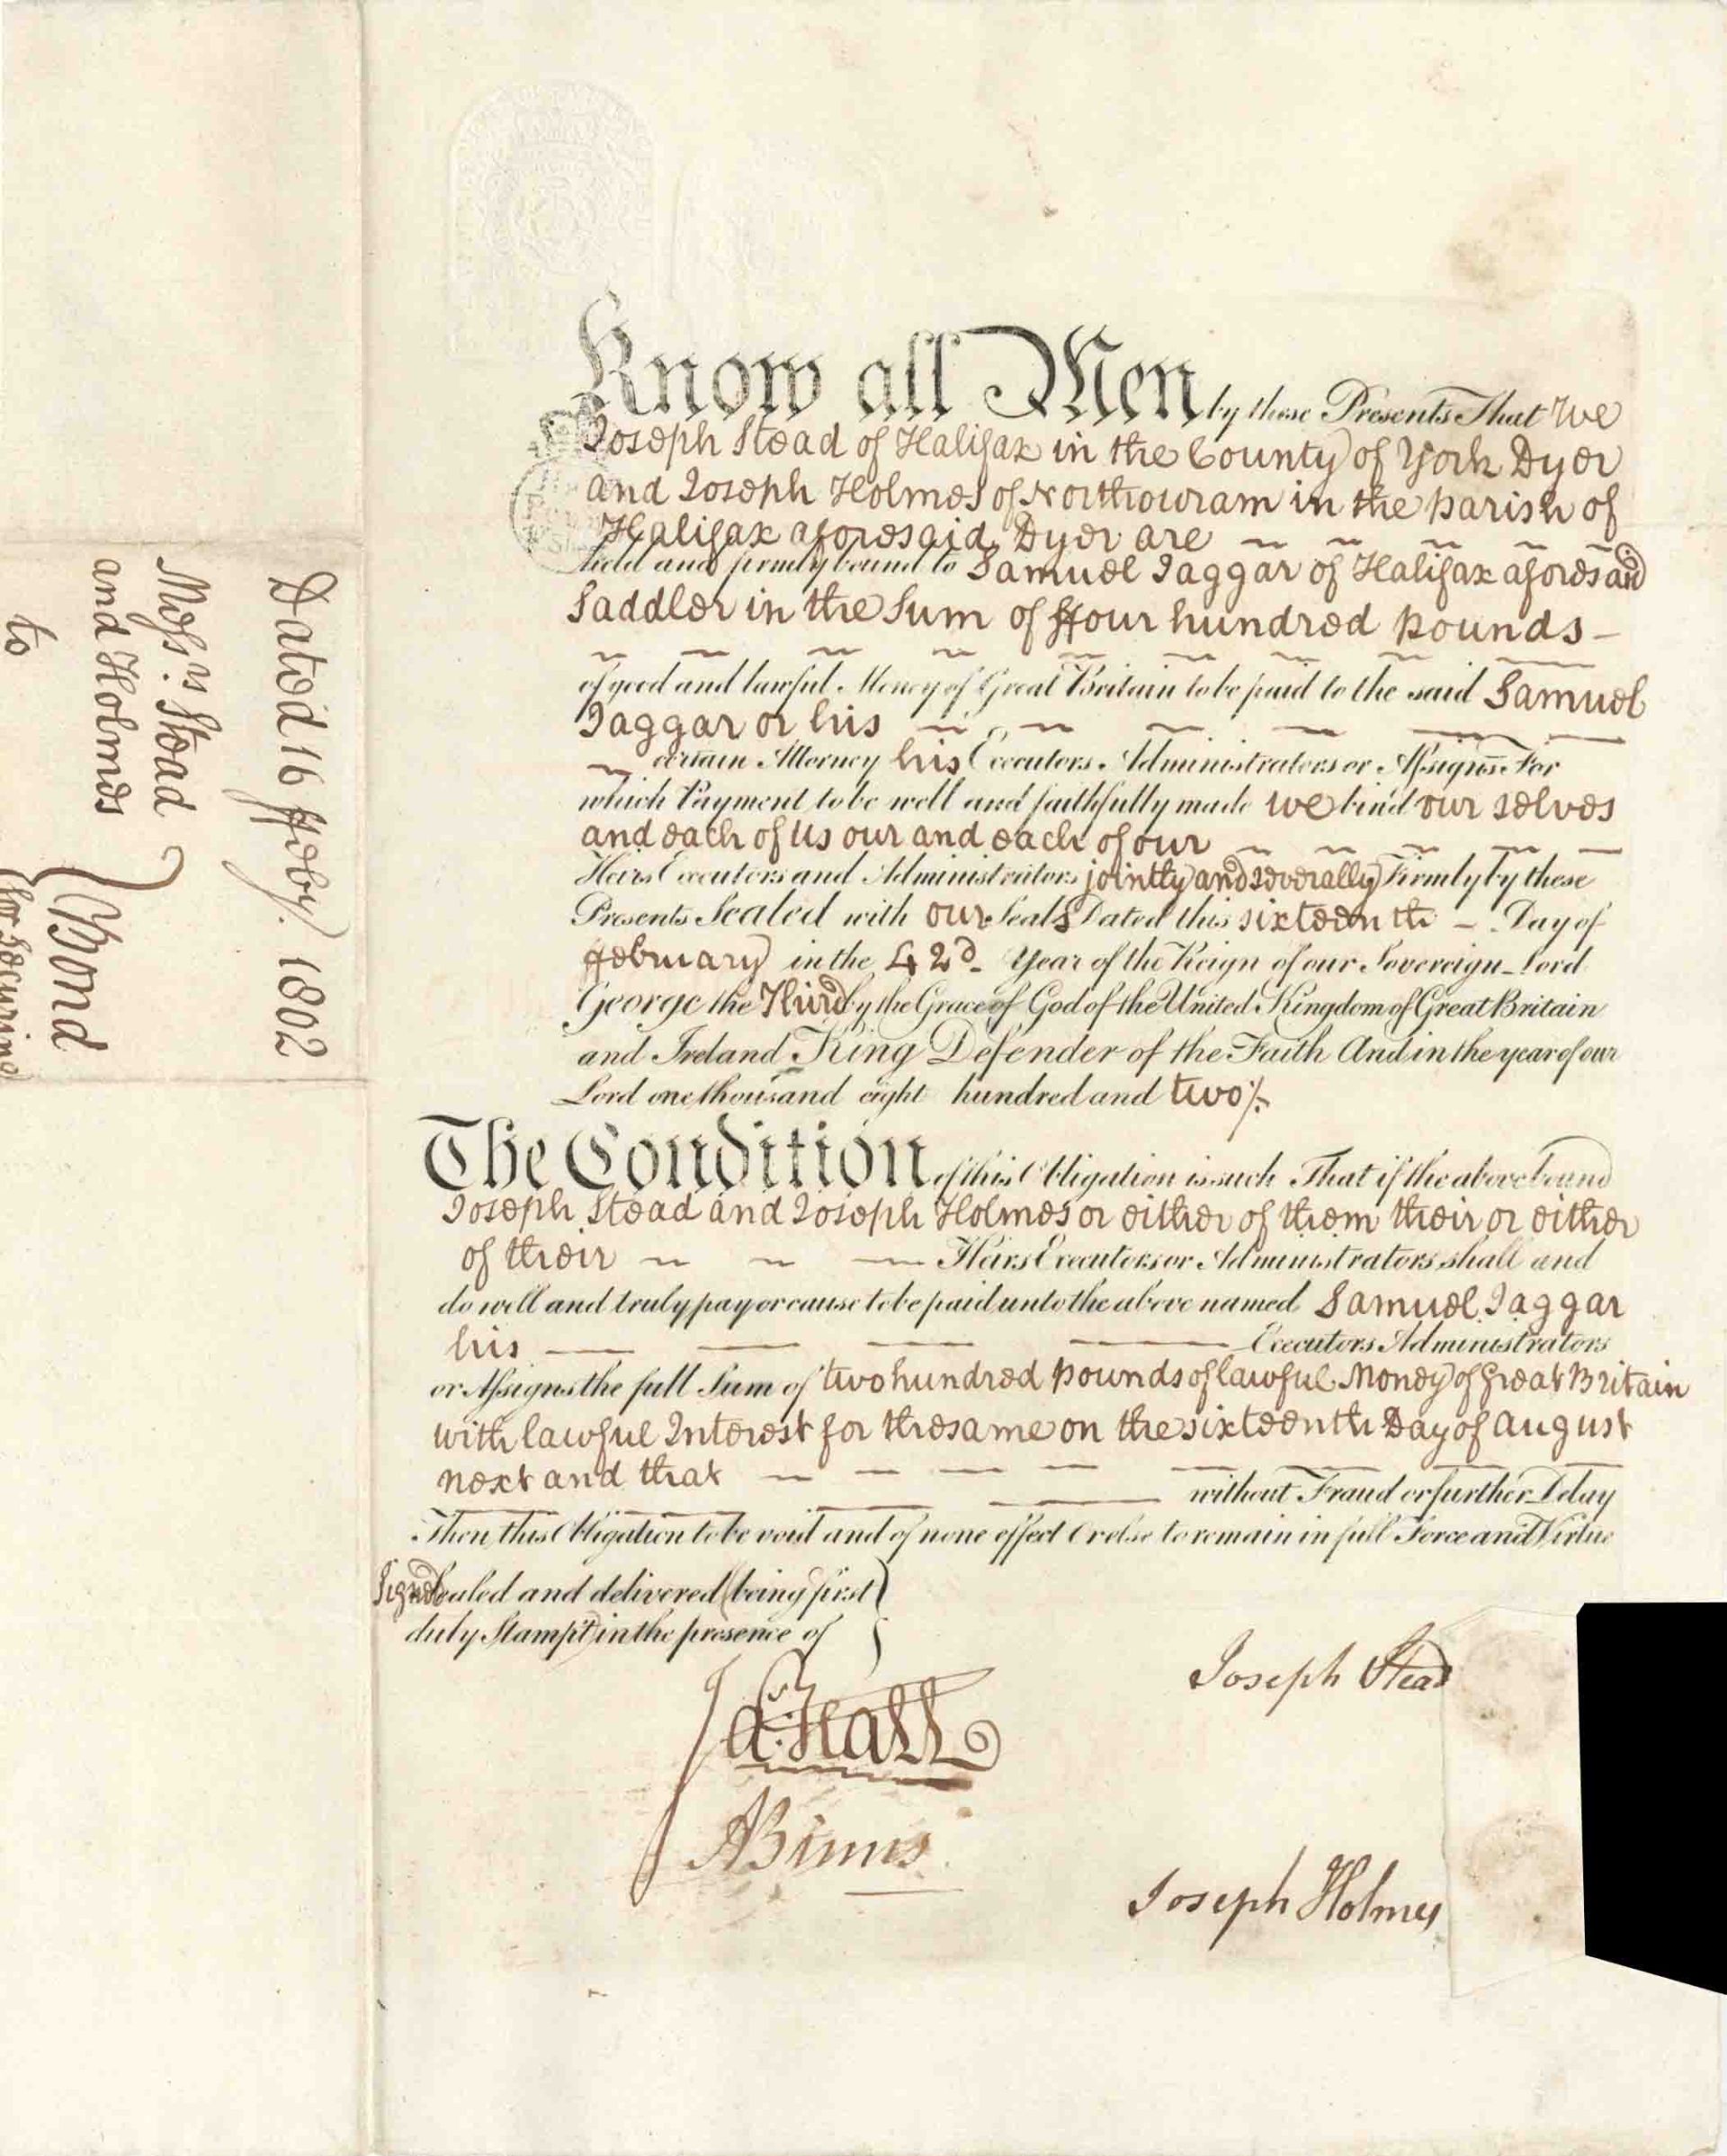 Know all Men by these Presents That We
Joseph Stead of Halifax in the County of York Dyer
and Joseph Holmes of Northowram in the parish of
Halifax aforesaid Dyer are
held and firmly bound to Samuel Jaggar of Halifax aforesaid
Saddler in the Sum of ffour hundred pounds
of good and lawful Money of Great Britain to be paid to the said Samuel
Jaggar or his
certain Attorney his Executors Administrators or Assigns For
which Payment to be well and faithfully made we bind our selves
and each of us our and each of our
Heirs Executors and Administrators jointly and severally Firmly by these
Presents Sealed with our Seals Dated this sixteenth Day of
ffebruary in the 42d. Year of the Reign of our Sovereign Lord
George the Third by the Grace of God of the United Kingdom of Great Britain
and Ireland King Defender of the Faith And in the year of our
Lord one thousand eight hundred and two
The Condition of this Obligation is such That if the above bound
Joseph Stead and Joseph Holmes or either of them their or either
of their Heirs Executors or Administrators shall and
do well and truly pay or cause to be paid unto the above named Samuel Jaggar
his Executors Administrators
or Assigns the full Sum of two hundred pounds of lawful Money of Great Britain
with lawful Interest for the same on the sixteenth Day of August
next and that without Fraud or further Delay
Then this Obligation to be void and of none effect Or else to remain in full Force and Virtue
Signed Sealed and delivered (being first
duly Stampt) in the presence of
Jas. Hall
A Binns
Joseph Stead
Joseph Holmes
Dated 16 ffeby. 1802
Messrs. Stead
and Holmes
to
Bond
for securing